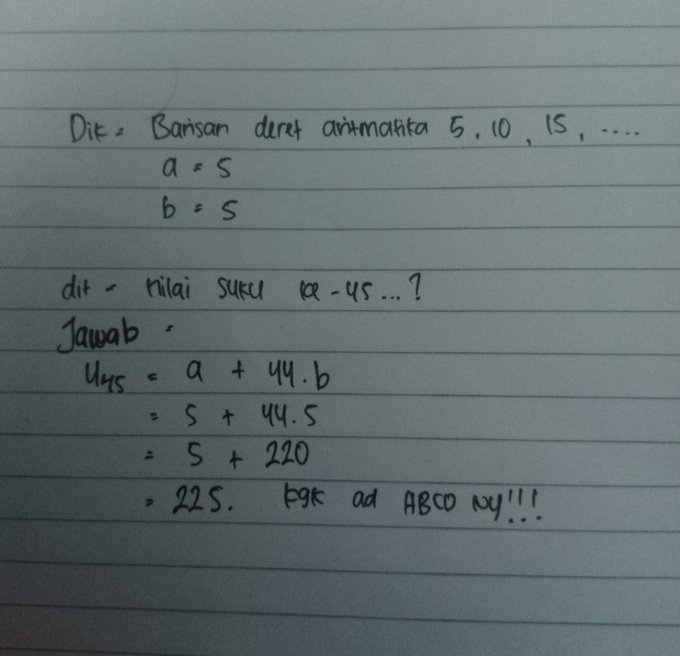 Dik = Barisan deret aritmatika 5, 10, 15, ....
a = 5
b = 5
dit = nilai suku ke-45...?
Jawab =
U45 = a + 44.b
= 5 + 44.5
= 5 + 220
= 225. kgk ad ABCD Ny!!!